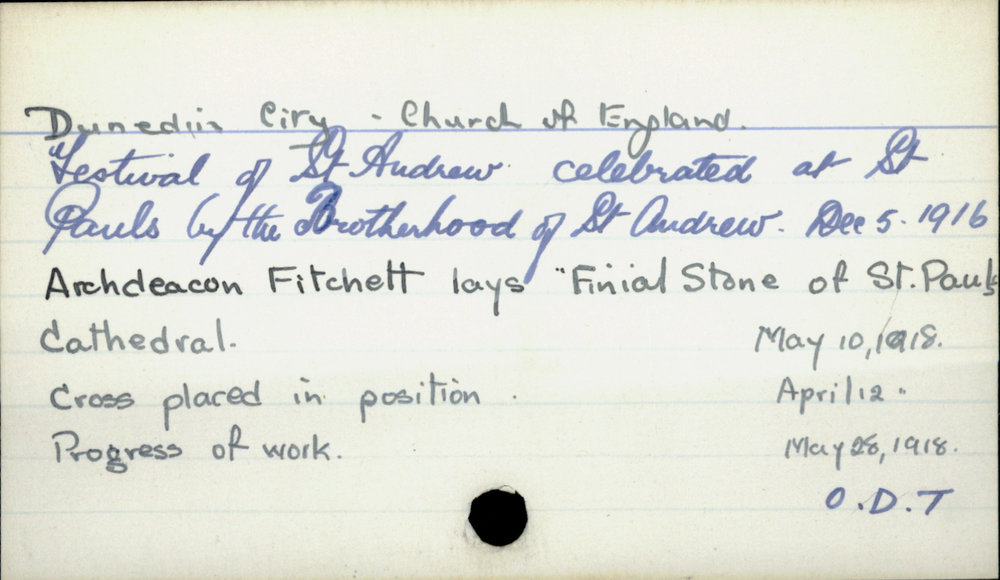 Dunedin City - Church of England.
"Festival of St Andrew celebrated at St
Pauls by the Brotherhood of St Andrew. Dec 5. 1916
Archdeacon Fitchett lays "Finial Stone of St. Pauls
Cathedral. May 10, 1918.
Cross placed in position. April 12 "
Progress of work. May 28, 1918.
O.D.T